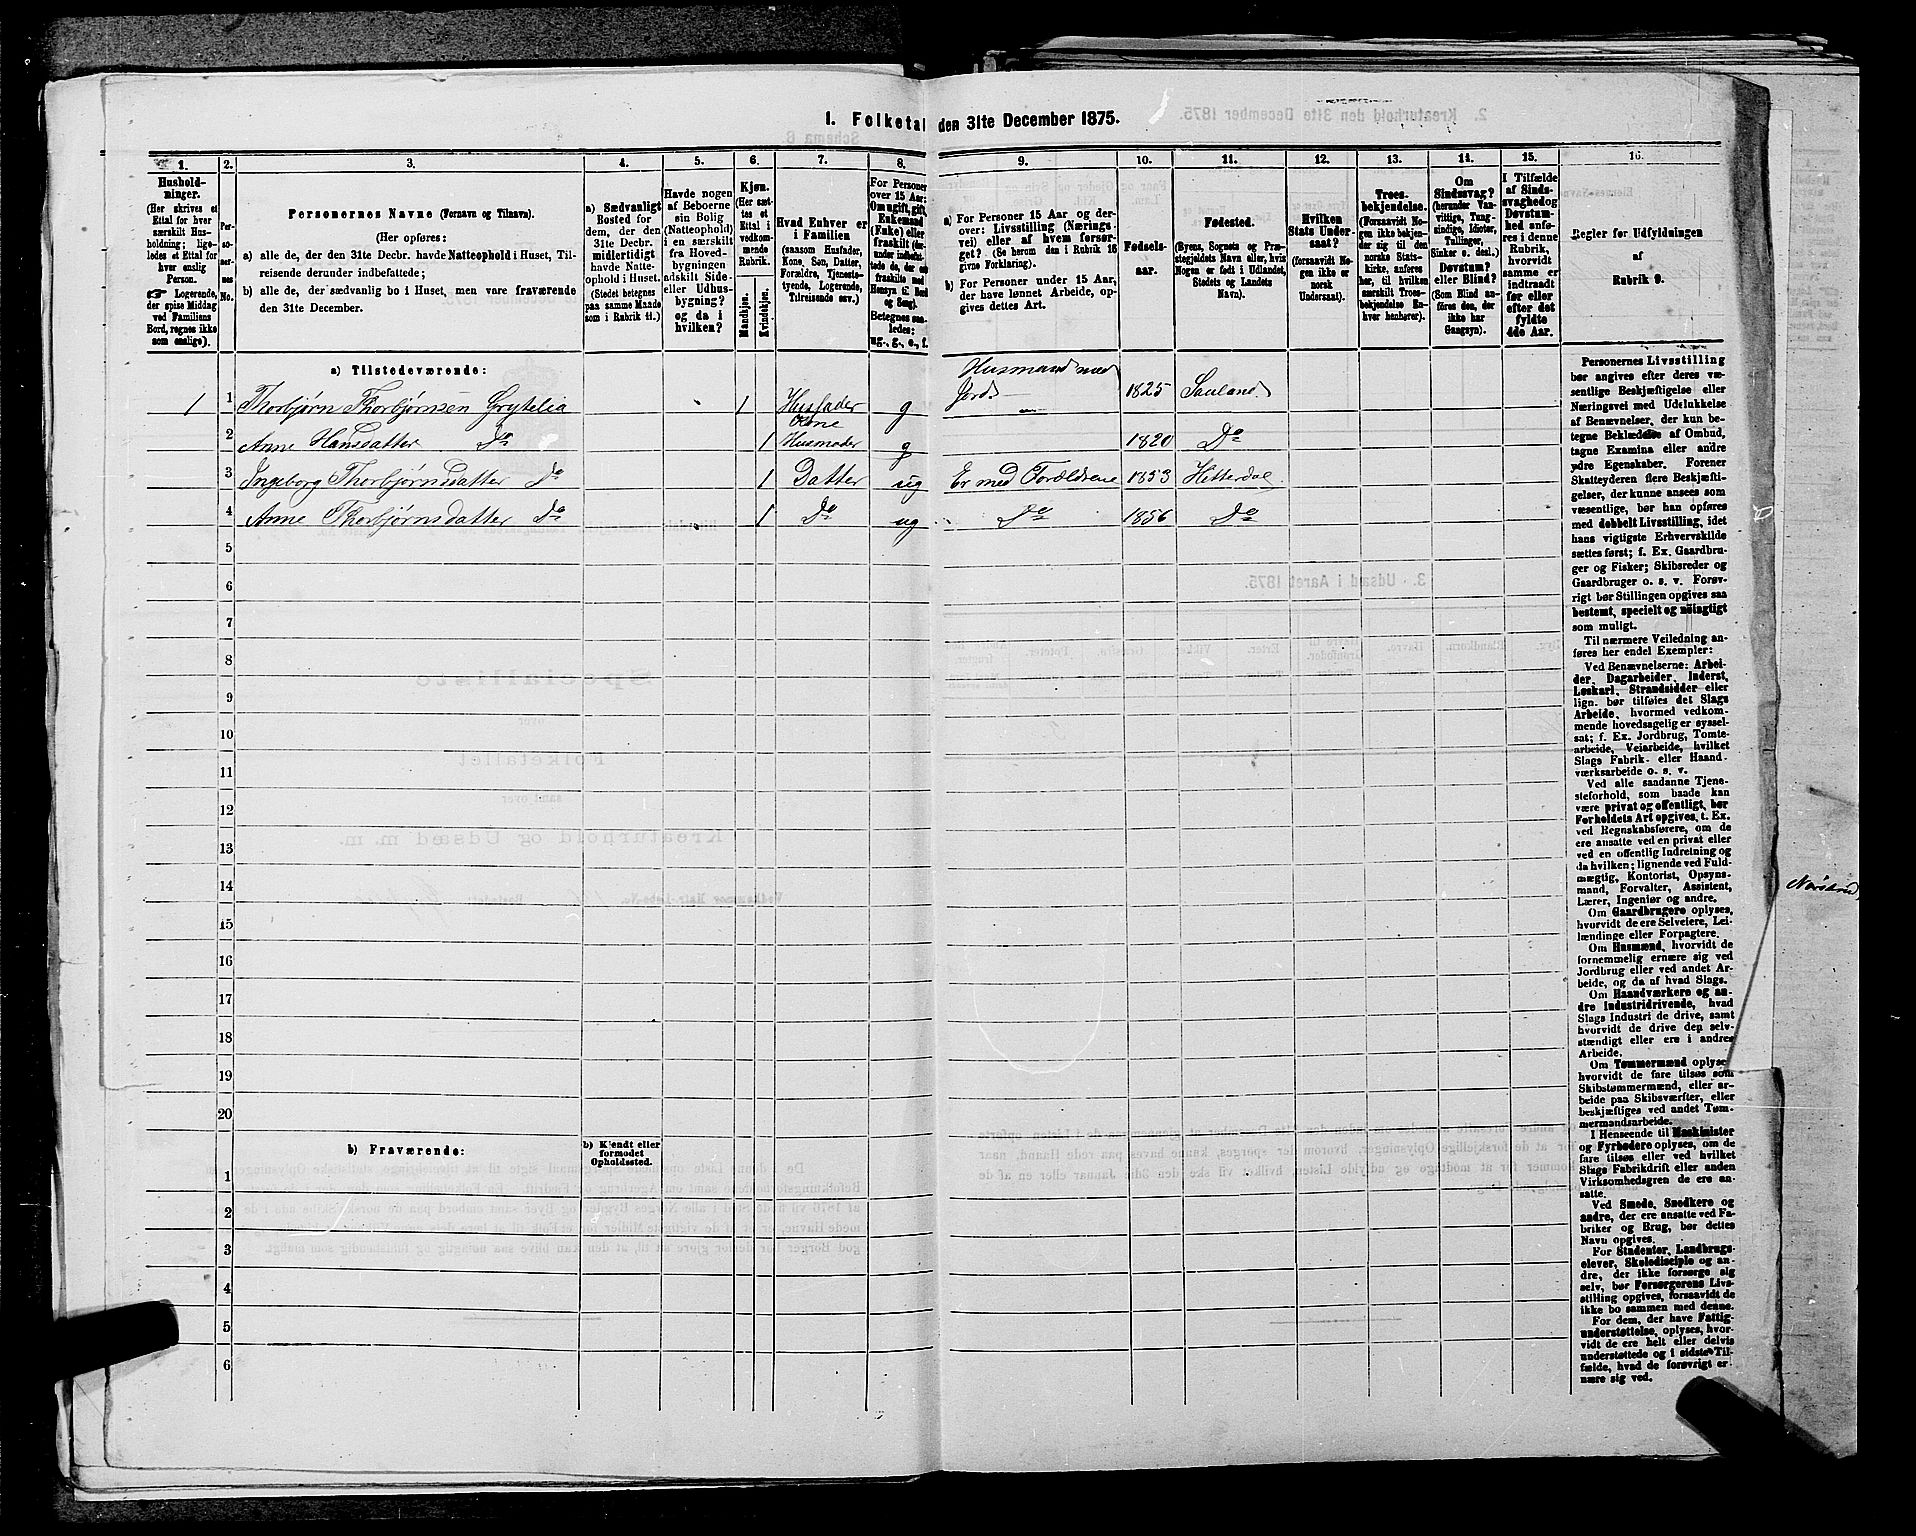 I. Folketal den 31te December 1875.
1.
Husholdninger.
(Her skrives et
Ettal for hver
særskilt Husholdning; ligeledes
et Ettal for
hver enslig
Person.
☞ Logerende,
der spise Middag
ved Familiens
Bord, regnes ikke
som enslige).
2.
Personernes
No.
3.
Personernes Navne (Fornavn og Tilnavn).
(Her opføres:
a) alle de, der den 31te Decbr. havde Natteophold i Huset, Tilreisende derunder indbefattede;
b) alle de, der sædvanlig bo i Huset, men vare fraværende
den 31te December.
4.
a) Sædvanligt
Bosted for
dem, der den
31te Decbr.
midlertidigt
havde Natteophold i Huset.
(Stedet betegnes
paa samme Maade
som i Rubrik 11.)
5.
Havde nogen
af Beboerne
sin Bolig
(Natteophold)
i en særskilt
fra Hovedbygningen
adskilt Side-
eller Udhusbygning?
og da i
hvilken?
6.
Kjøn.
(Her sættes et
Ettal i
vedkommende
Rubrik.
Mandkjøn.
Kvindekjøn.
7.
Hvad Enhver er
i Familien
(saasom Husfader,
Kone, Søn, Datter,
Forældre, Tjenestetyende, Logerende,
Tilreisende osv.)
8.
For Personer
over 15 Aar:
Om ugift, gift,
Enkemand
(Enke) eller
fraskilt
Betegnes saaledes:
ug., g., e., f.
9.
a) For Personer 15 Aar og derover: Livsstilling (Næringsvei) eller af hvem forsørget? (Se herom den i Rubrik 16
givne Forklaring).
b) For Personer under 15 Aar,
der have lønnet Arbeide, opgives dettes Art.
10.
Fødselsaar.
11.
Fødested.
(Byens, Sognets og Præstegjeldets Navn eller, hvis
Nogen er født i Udlandet,
Stedets og Landets
Navn).
12.
Hvilken
Stats Undersaat?
(forsaavidt Nogen ikke er
norsk
Undersaat).
13.
Troesbekjendelse.
(Forsaavidt Nogen ikke bekjender sig til den
norske Statskirke, anføres
her, til hvilken
særskilt Troesbekjendelse Enhver henhører).
14.
Om
Sindssvag?
(herunder Vanvittige, Tungsindige, Idioter,
Tullinger,
Sinker o. desl.)
Døvstum?
eller Blind?
(Som Blind anføres den, der
ikke har
Gangsyn).
15.
I Tilfælde
af Sindssvaghed og
Døvstumhed anføres
i denne
Rubrik,
hvorvidt
samme er
indtraadt
før eller
efter det
fyldte
4de Aar.
16.
Regler for Udfyldningen
af
Rubrik 9.
a) Tilstedeværende:
1 1 Thorbjørn Thorbjørnsen Grytelia 1 Husfader g Husmand med Jord 1825 Sauland
2 Anne Hansdatter Do 1 Kone Husmoder g 1820 Do
3 Ingeborg Thorbjørnsdatter Do 1 Datter ug Er med Forældrene 1853 Hitterdal
4 Anne Thorbjørnsdatter Do 1 Do ug Do 1856 Do
5
6
7
8
9
10
11
12
13
14
15
16
17
18
19
20
b) Fraværende:
b) Kjendt eller
formodet
Opholdssted.
1
2
3
4
5
6
Personernes Livsstilling
bør angives efter deres væsentlige Beskjæftigelse eller
Næringsvei med Udelukkelse
af Benævnelser, der kun betegne Beklædelse af Ombud,
tagne Examina eller andre
ydre Egenskaber. Forener
Skatteyderen flere Beskjæftigelser, der kunne ansees som
væsentlige, bør han opføres
med dobbelt Livsstilling, idet
hans vigtigste Erhvervskilde
sættes først; f. Ex. Gaardbruger og Fisker; Skibsreder og
Gaardbruger o. s. v. Forøvrigt bør Stillingen opgives saa
bestemt, specielt og nøiagtigt
som muligt.
Til nærmere Veiledning anføres her endel Exempler:
Ved Benævnelserne: Arbeider, Dagarbeider, Inderst,
Løskarl, Strandsidder eller
lign. bør tilføies det Slags
Arbeide, hvormed vedkommende hovedsagelig er sysselsat; f. Ex. Jordbrug, Tomtearbeide, Veiarbeide, hvilket
Slags Fabrik- eller Haandværksarbeide o. s. v.
Ved alle saadanne Tjenesteforhold, som baade kan
være privat og offentligt, bør
Forholdets Art opgives, t. Ex.
ved Regnskabsførere, om de
ere ansatte ved en privat eller
ved en offentlig Indretning og
da hvilken; lignende ved Fuldmægtig, Kontorist, Opsynsmand, Forvalter, Assistent,
Lærer, Ingeniør og andre.
Om Gaardbrugere oplyses,
hvorvidt de ere Selveiere, Leilændinge eller Forpagtere.
Om Husmænd, hvorvidt de
fornemmelig ernære sig ved
Jordbrug eller ved andet Arbeide, og da af hvad Slags.
Om Haandværkere og andre Industridrivende, hvad
Slags Industri de drive, samt
hvorvidt de drive den selvstændigt eller ere i andres
Arbeide.
Om Tømmermænd oplyses
hvorvidt de fare tilsøs som
Skibstømmermænd, eller arbeide paa Skibsværfter, eller
beskjæftiges ved andet Tømmermandsarbeide.
I Henseende til Maskinister
og Fyrbødere oplyses, om de
fare tilsøs eller ved hvilket
Slags Fabrikdrift eller anden
Virksomhedsgren de ere ansatte.
Ved Smede, Snedkere og
andre, der ere ansatte ved Fabriker og Brug, bør dettes
Navn opgives.
For Studenter, Landbrugselever, Skoledisciple og andre, der ikke forsørge sig
selv, bør Forsørgerens Livsstilling opgives, forsaavidt de
ikke bo sammen med denne.
For dem, der have Fattigunderstøttelse, oplyses, hvorvidt de ere helt eller delvis
understøttede og i sidste Tilfælde, hvad de forøvrigt ernære sig ved.